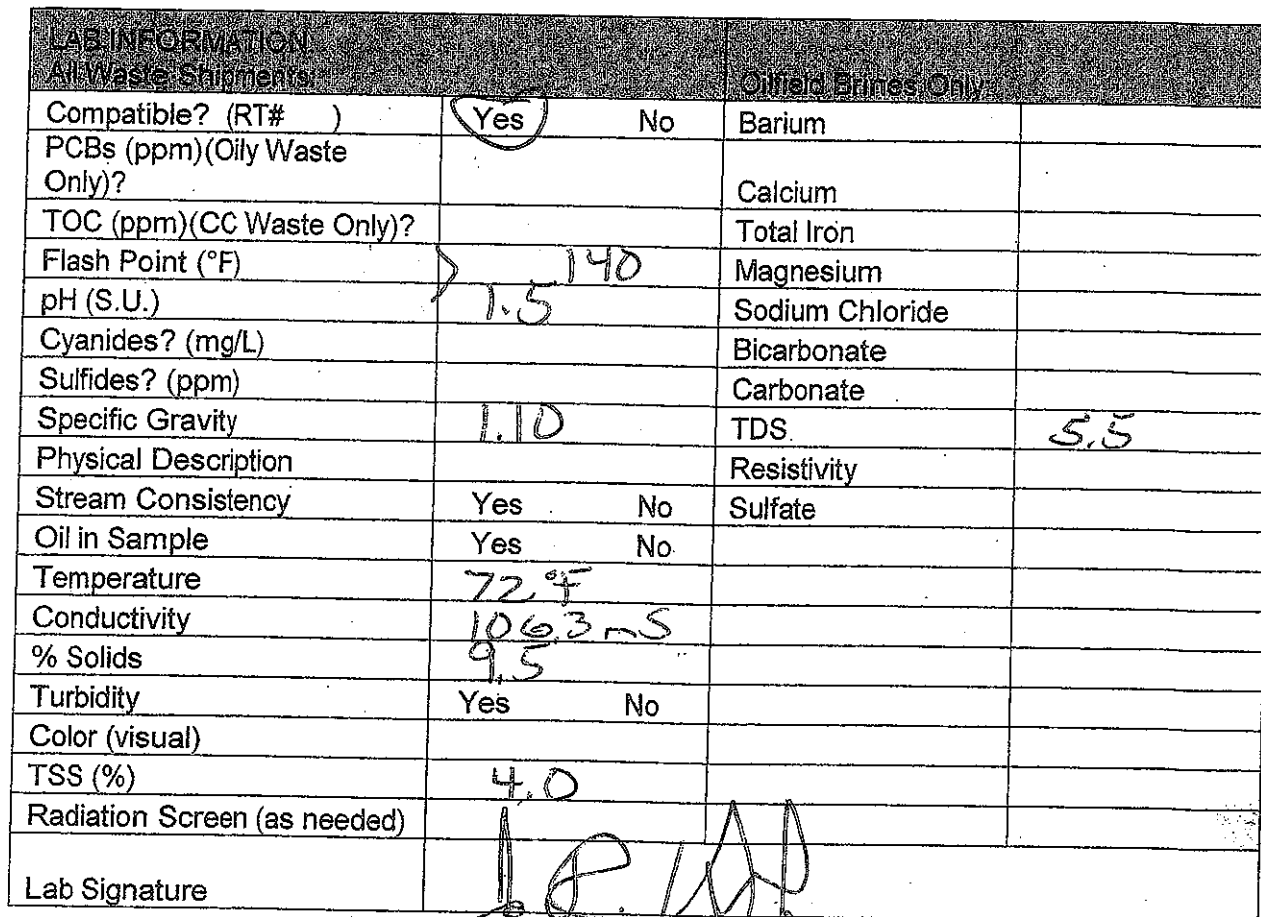 LAB INFORMATION
All Waste Shipments: Oilfield Brines Only:
Compatible? (RT# ) Yes No Barium
PCBs (ppm)(Oily Waste
Only)? Calcium
TOC (ppm)(CC Waste Only)? Total Iron
Flash Point (°F) > 140 Magnesium
pH (S.U.) 1.5 Sodium Chloride
Cyanides? (mg/L) Bicarbonate
Sulfides? (ppm) Carbonate
Specific Gravity 1.10 TDS 5.5
Physical Description Resistivity
Stream Consistency Yes No Sulfate
Oil in Sample Yes No
Temperature 72°F
Conductivity 106.3 mS
% Solids 9.5
Turbidity Yes No
Color (visual)
TSS (%) 4.0
Radiation Screen (as needed)
Lab Signature